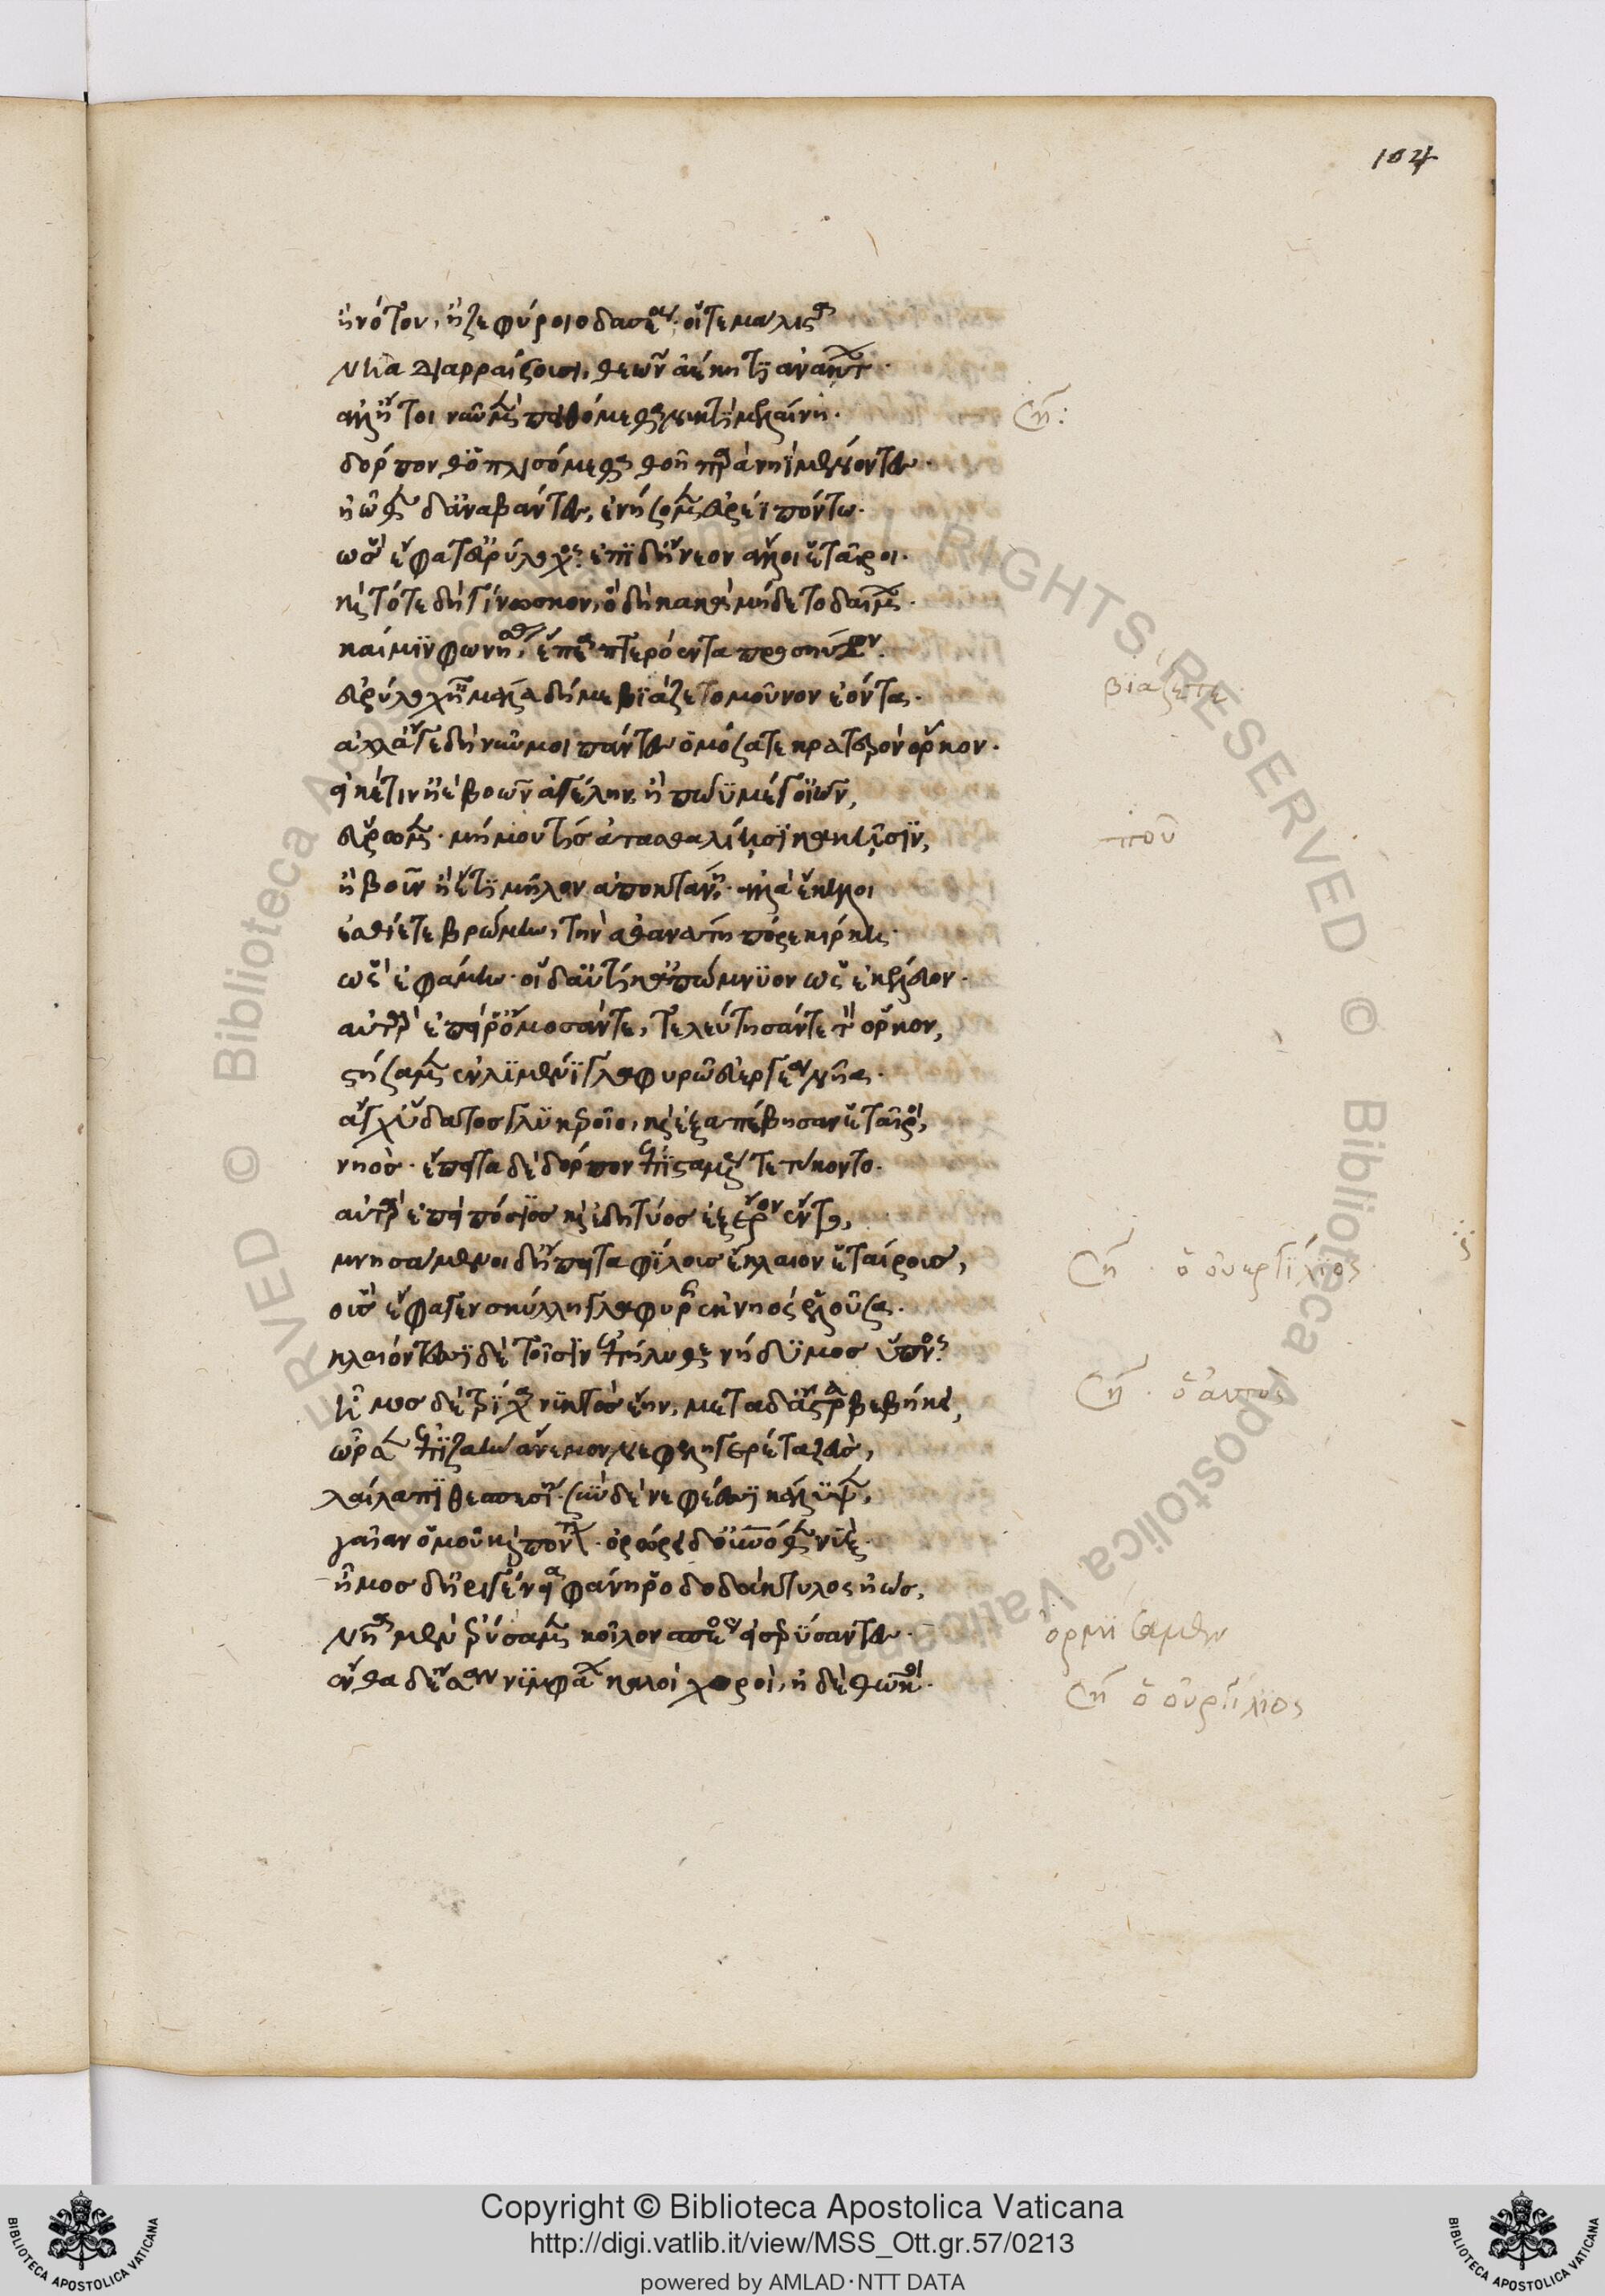 104
ἢ νότου, ἢ ζεφύροιο δυσαέος· οἵτε μάλιστα
νῆα διαρραίουσι, θεῶν ἀέκητι ἀνάκτων·
ἀλλ' ἤτοι νῦν μὲν πειθώμεθα νυκτὶ μελαίνῃ·
σῆ:
δόρπον θ' ὁπλισόμεσθα θοῇ παρὰ νηῒ μένοντες·
ἠῶθεν δ' ἀναβάντες, ἐνήσομεν εὐρέϊ πόντω·
ὣς ἔφατ' εὐρύλοχος· ἐπὶ δ' ἤνεον ἄλλοι ἑταῖροι·
καὶ τότε δὴ γίνωσκον, ὃ δὴ κακὰ μήδετο δαίμων·
καί μιν φωνήσας, ἔπεα πτερόεντα προσηύδων·
εὐρύλοχ' ἦ μάλα δή με βιάζετε μοῦνον ἐόντα·
βιάζετε
ἀλλ' ἄγε δὴ νῦν μοι πάντες ὀμόσατε κρατερὸν ὅρκον·
εἴ κέ τιν' ἠὲ βοῶν ἀγέλην, ἢ πῶϋ μέγ' οἰῶν,
εὕρωμεν· μή που τὶς ἀτασθαλίῃσι κακῇσιν,
που
ἢ βοῦν ἠέ τι μῆλον ἀποκτάνῃ· ἀλλὰ ἕκηλοι
ἐσθίετε βρώμην, τὴν ἀθανάτη πόρε κίρκη·
ὣς ἐφάμην· οἱ δ' αὐτίκ' ἀπώμνυον ὡς ἐκέλευον·
αὐτὰρ ἐπεί ῥ' ὄμοσάν τε, τελεύτησάν τε τὸν ὅρκον,
στήσαμεν ἐν λιμένι γλαφυρῷ εὐεργέα νῆα·
ἄγχ' ὕδατος γλυκεροῖο, καὶ ἐξαπέβησαν ἑταῖροι,
νηός· ἔπειτα δὲ δόρπον ἐπισταμένως τετύκοντο·
αὐτὰρ ἐπεὶ πόσιος καὶ ἐδητύος ἐξ ἔρον ἕντο,
μνησάμενοι δ' ἤπειτα φίλους ἔκλαιον ἑταίρους,
σῆ · ὁ οὐεργίλιος
οὓς ἔφαγε σκύλλη γλαφυρῆς ἐκ νηὸς ἑλοῦσα·
κλαιόντεσσι δὲ τοῖσιν ἐπήλυθε νήδυμος ὕπνος·
ἦμος δὲ τρίχα νυκτὸς ἔην, μετὰ δ' ἄστρα βεβήκει,
σῆ · ὁ αυτος
ὦρσεν ἐπὶ ζαῆν ἄνεμον νεφεληγερέτα ζεὺς,
λαίλαπι θεσπεσίῃ· σὺν δὲ νεφέεσσι κάλυψε,
γαῖαν ὁμοῦ καὶ πόντον· ὀρώρει δ' οὐρανόθεν νύξ·
ἦμος δ' ἠριγένεια φάνη ῥοδοδάκτυλος ἠὼς,
νῆα μὲν ὡρμίσαμεν κοῖλον σπέος εἰσερύσαντες·
ὁρμίσαμεν
ἔνθα δ' ἔσαν νυμφῶν καλοὶ χοροὶ, ἠδὲ θῶκοι·
σῆ ὁ οὐργίλιος
Copyright © Biblioteca Apostolica Vaticana
http://digi.vatlib.it/view/MSS_Ott.gr.57/0213
powered by AMLAD·NTT DATA